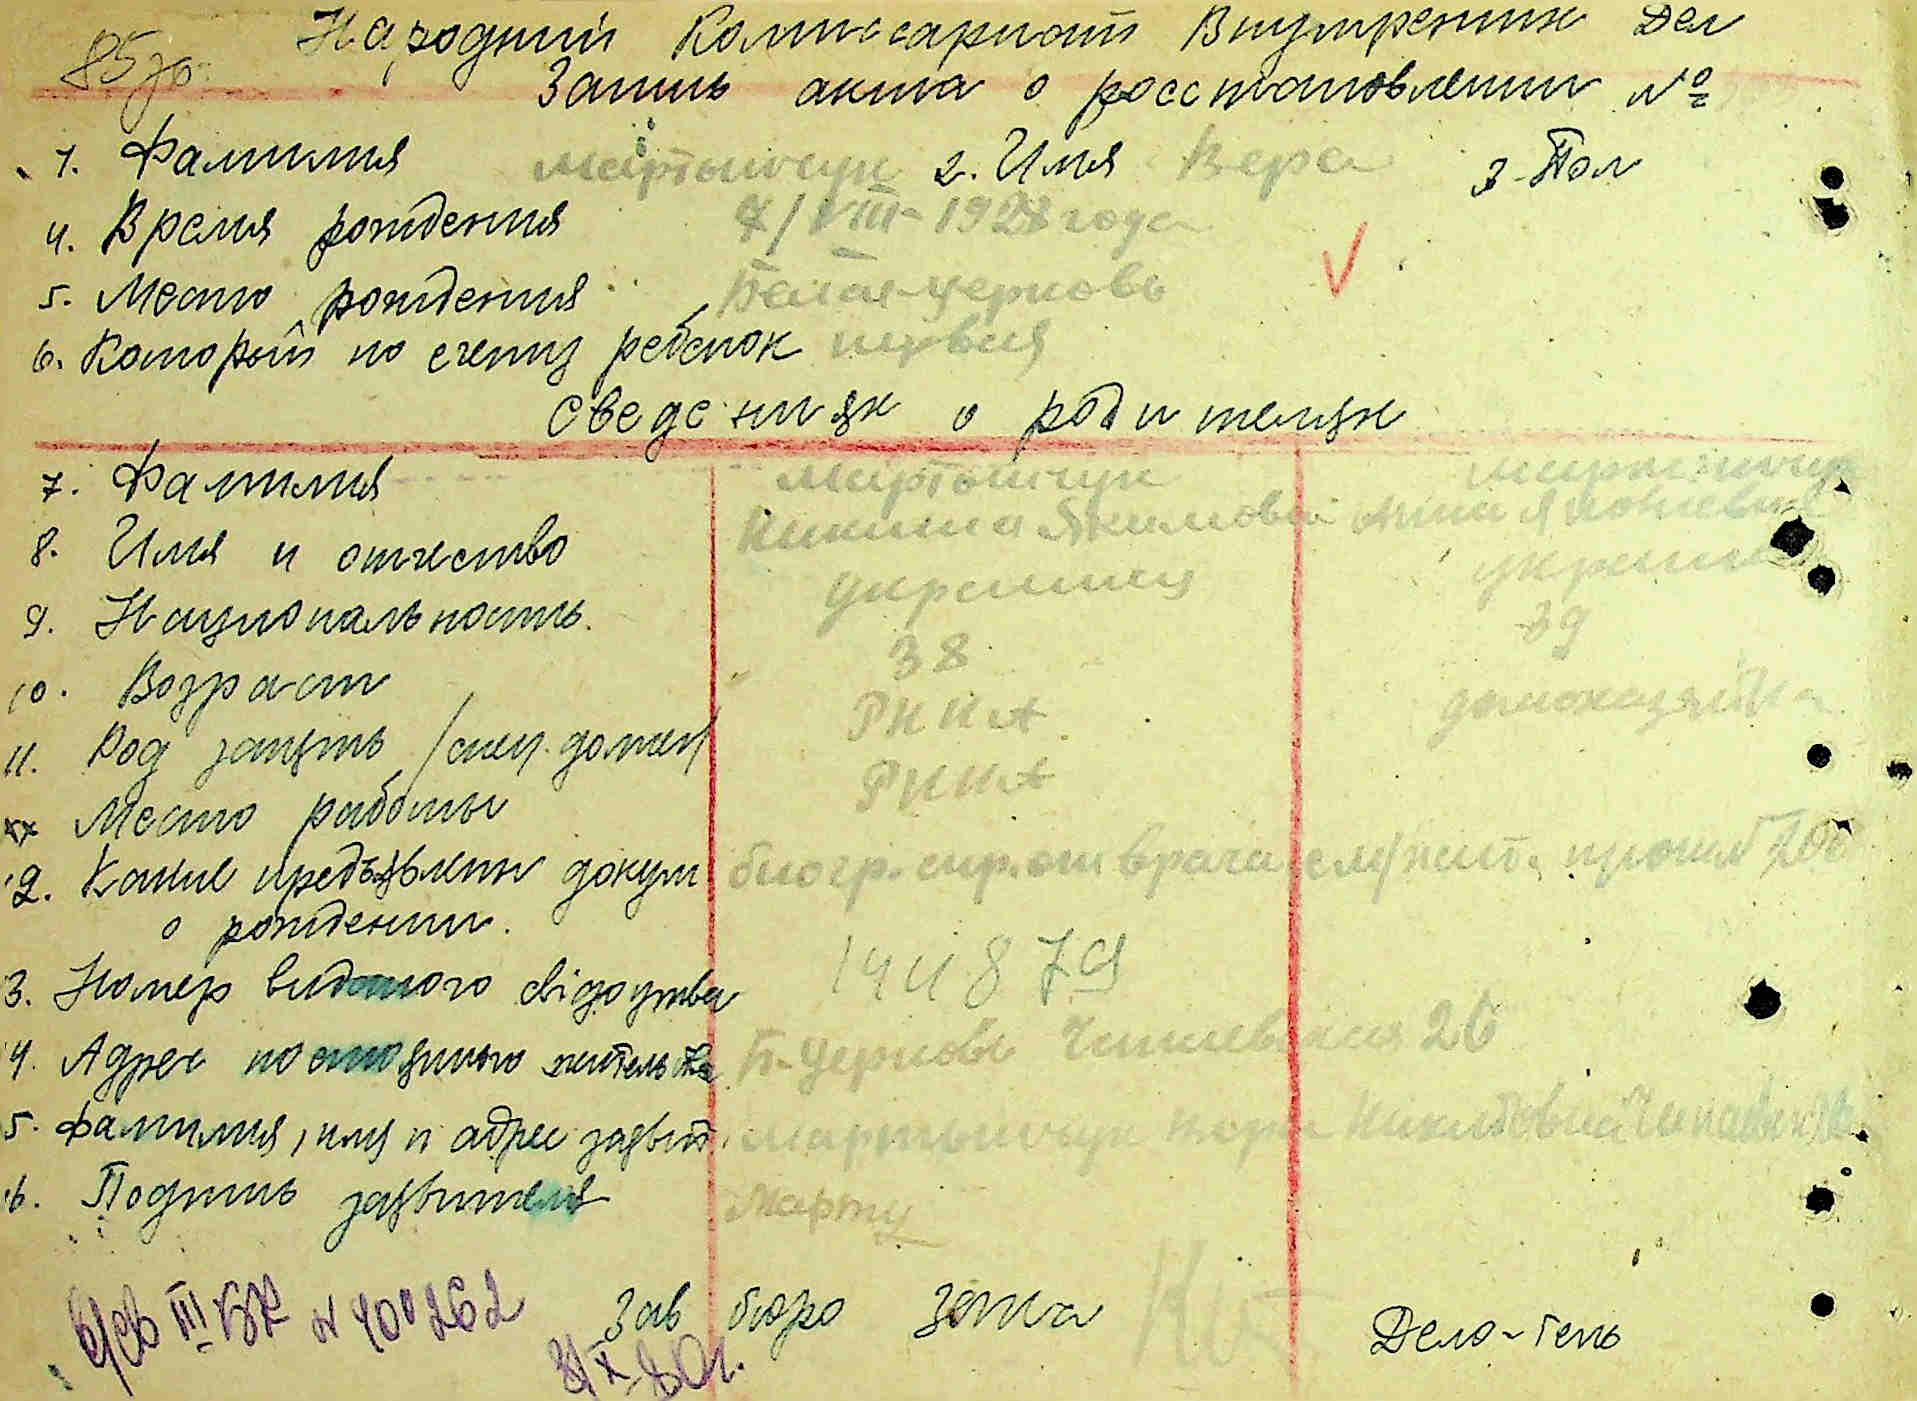 85
Народний Комиссариат Внутрених Дел
Запись акта о росстановлении №
1. Фамилия Мартынчук 2. Имя Вера 3. Пол
4. Время рождения /VIII-1928 года
5. Место рождения Белая-Церковь
6. Который по счету ребенок первая
Сведения о родителях
7. Фамилия Мартынчук Мартынчук
8. Имя и отчество Никита Якимович Анна
9. Национальность. украинец
10. Возраст 38 39
11. Род занять /спец. должн/ РККА домохозяйка
Место работы РККА
2. Какие предъявлены докум биогр. спр. от врача
о рождении.
3. Номер виданого свідоцтва
4. Адрес постоянного жительства Б-Церковь 26
5. Фамилия, имя и адрес заявит. Мартынчук
6. Подпись заявителя Марты
III БК № 400262
Зав бюро Загса Дело-тель
31 X 80г.